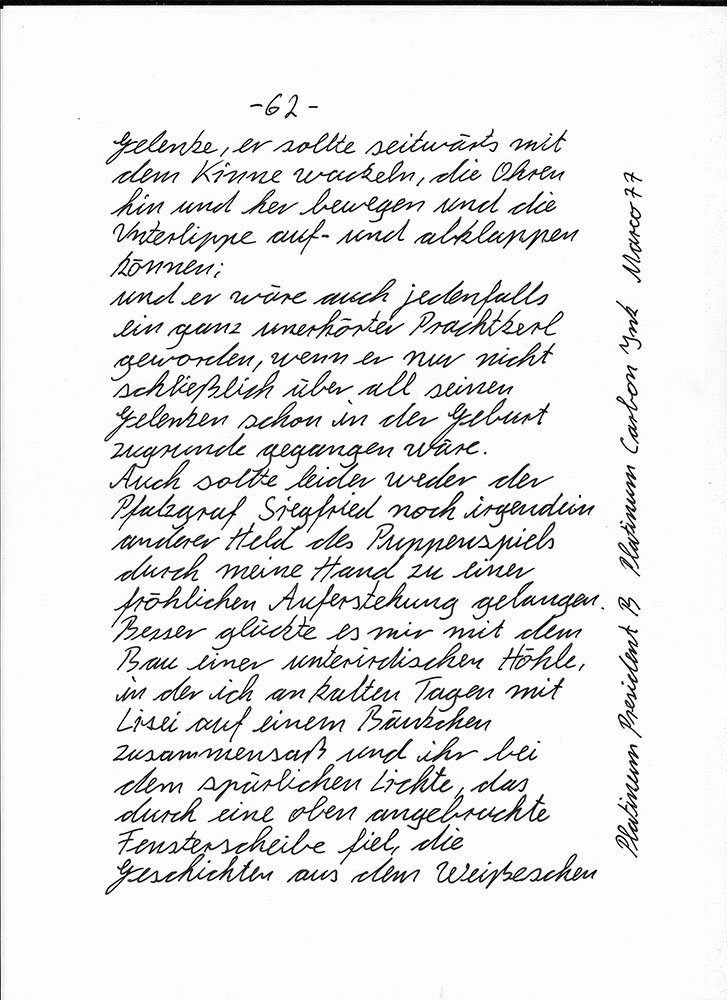 -62-
Gelenke, er sollte seitwärts mit
dem Kinne wackeln, die Ohren
hin und her bewegen und die
Unterlippe auf- und abklappen
können;
und er wäre auch jedenfalls
ein ganz unerhörter Prachtkerl
geworden, wenn er nur nicht
schließlich über all seinen
Gelenken schon in der Geburt
zugrunde gegangen wäre.
Auch sollte leider weder der
Pfalzgraf Siegfried noch irgendein
anderer Held des Puppenspiels
durch meine Hand zu einer
fröhlichen Auferstehung gelangen.
Besser glückte es mir mit dem
Bau einer unterirdischen Höhle,
in der ich an kalten Tagen mit
Lisei auf einem Bänkchen
zusammensaß und ihr bei
dem spärlichen Lichte, das
durch eine oben angebrachte
Fensterscheibe fiel, die
Geschichten aus dem Weißeschen
Platinum President B Platinum Carbon Ynk Marco77